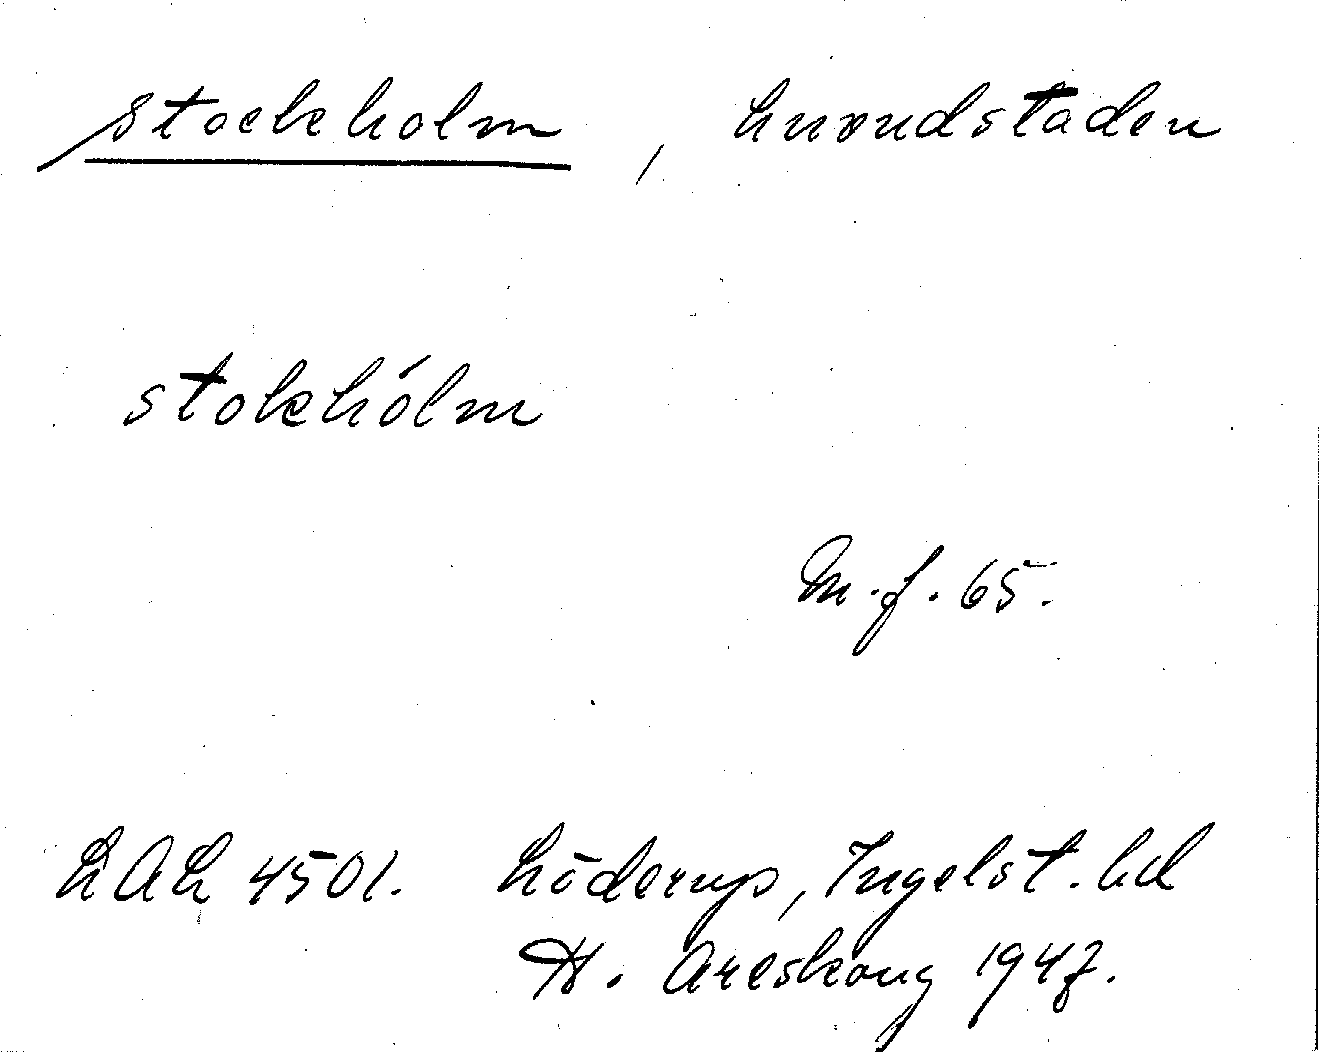 Stockholm, huvudstaden
stokhólm
M.f. 65.
LAL 4501. Löderup, Ingelst. hd
H. Areskoug 1947.